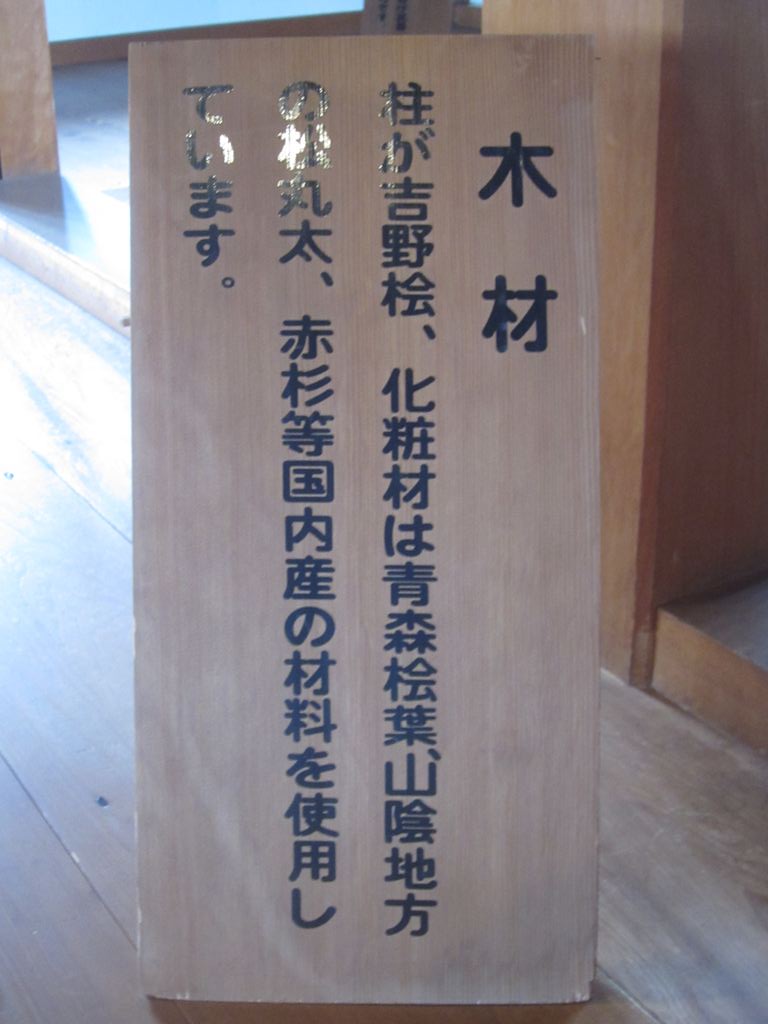 木材
柱が吉野桧、化粧材は青森桧葉、山陰地方
の松丸太、赤杉等国内産の材料を使用し
ています。